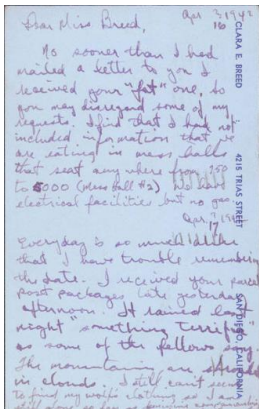 Apr 3 1942
16
Dear Miss Breed,
No sooner than I had
mailed a letter to you I
received your "fat" one, so
you may disregard some of my
requests. I find that I had not
included information that we
are eating in mess halls
that seat any where from 750
to 5000 (Mess Hall #2) We have
electrical facilities but no gas.
Apr. 17, 194
Everyday is so much alike
that I have trouble remembering
the date. I received your parcel
post packages late yesterday
afternoon. It rained last
night "something terrific"
as some of the fellows say.
The mountains are
in clouds. I still can't seem
to find my clothing so I am
still
CLARA E. BREED
4215 TRIAS STREET
SAN DIEGO, CALIFORNIA